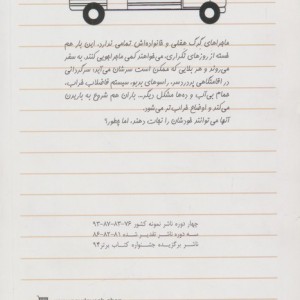 ماجراهای گرگ هفلی و خانواده‌اش تمامی ندارد. این بار هم
خسته از روزهای تکراری، می‌خواهند کمی ماجراجویی کنند. به سفر
می‌روند و هر بلایی که ممکن است سرشان می‌آید؛ سرگردانی
در اقامتگاهی پردردسر، راسوهای بدبو، سیستم فاضلاب خراب،
حمام بی‌آب و ده‌ها مشکل دیگر... باران هم شروع به باریدن
می‌کند و اوضاع خراب‌تر می‌شود.
آنها می‌توانند خودشان را نجات دهند، اما چطور؟
چهار دوره ناشر نمونه کشور ۷۶-۸۳-۸۷-۹۳
سه دوره ناشر تقدیر شده ۸۱-۸۲-۸۶
ناشر برگزیده جشنواره کتاب برتر ۹۴